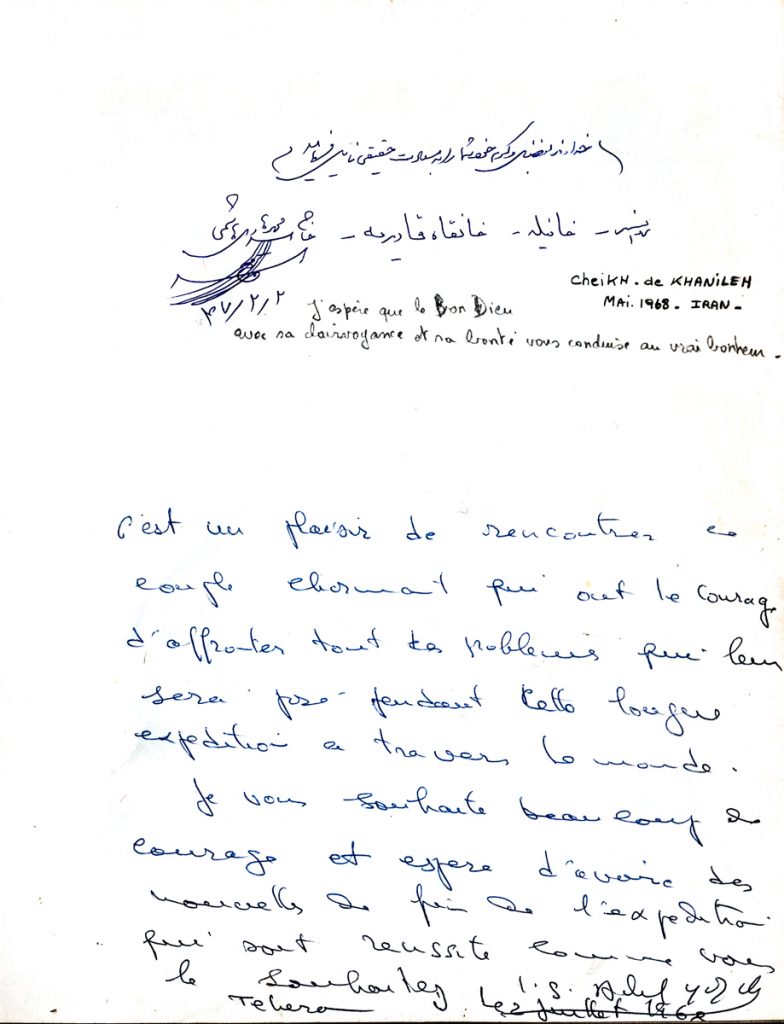 خداوند بفضل و کرم خود شما را به سعادت حقیقی نایل فرماید
خانیله - خانقاه قادریه - حاج
۴۷/۲/۲
CheiKH. de KHANiLEH
MAi. 1968 - IRAN -
J'espère que le Bon Dieu
avec sa clairvoyance et sa bonté vous conduise au vrai bonheur.
C'est un plaisir de rencontrer ce
couple charmant qui ont le courag
d'affronter tout les problems qui leur
sera pendant cette longue
expedition a travers le monde.
Je vous souhaite beaucoup de
courage et espere d'avoire des
nouvelles de fin de l'expedition
qui sont reussite comme vous
le souhaitez
Teheran Le 2 juillet 1968